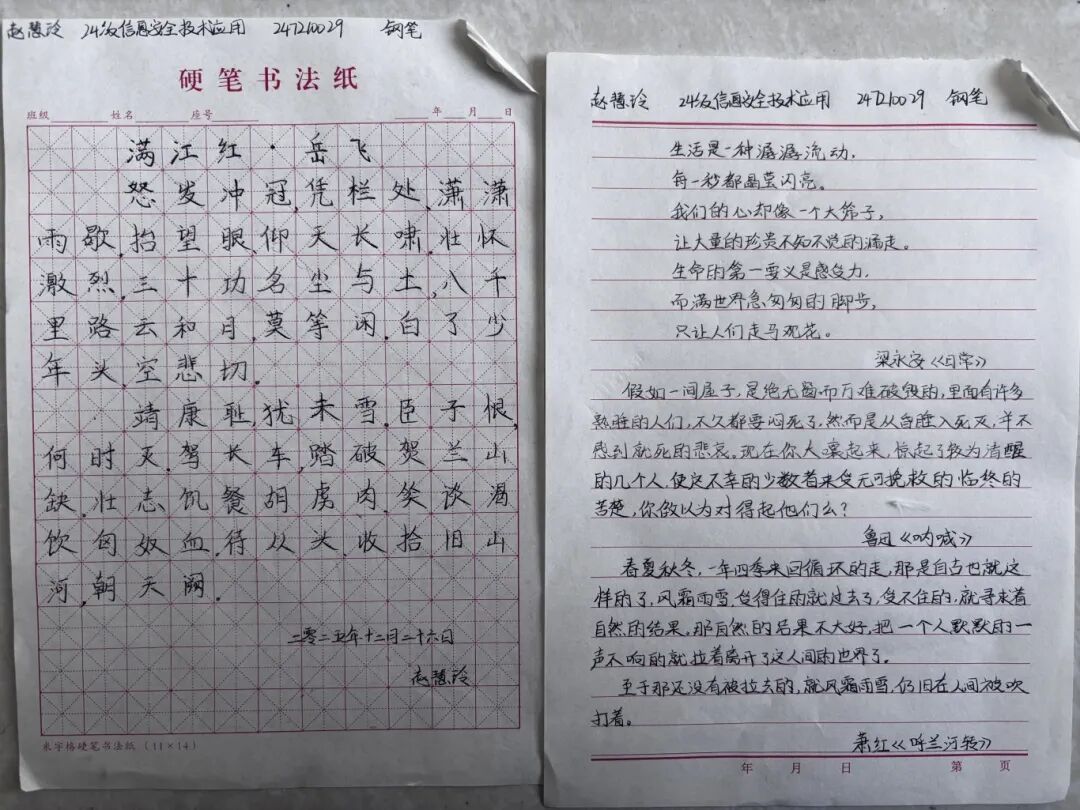 赵慧玲 24级信息安全技术应用 247210029 钢笔
硬笔书法纸
班级 姓名 座号 年 月 日
满江红·岳飞
怒发冲冠,凭栏处,潇潇
雨歇,抬望眼,仰天长啸,壮怀
激烈,三十功名尘与土,八千
里路云和月,莫等闲,白了少
年头,空悲切.
靖康耻,犹未雪,臣子恨,
何时灭,驾长车,踏破贺兰山
缺,壮志饥餐胡虏肉,笑谈渴
饮匈奴血,待从头,收拾旧山
河,朝天阙.
二零二五年十二月二十六日
赵慧玲
米字格硬笔书法纸(11×14)
赵慧玲 24级信息安全技术应用 247210029 钢笔
生活是一种潺潺流动,
每一秒都晶莹闪亮。
我们的心却像一个大筛子,
让大量的珍贵不知不觉的漏走。
生命的第一要义是感受力,
而满世界急匆匆的脚步,
只让人们走马观花。
梁永安《日常》
假如一间屋子,是绝无窗而万难破毁的,里面有许多
熟睡的人们,不久都要闷死了,然而是从昏睡入死灭,并不
感到就死的悲哀。现在你大嚷起来,惊起了较为清醒
的几个人,使这不幸的少数者来受无可挽救的临终的
苦楚,你做以为对得起他们么?
鲁迅《呐喊》
春夏秋冬,一年四季来回循环的走,那是自古也就这
样的了,风霜雨雪,受得住的就过去了,受不住的,就寻求着
自然的结果。那自然的结果不大好,把一个人默默的一
声不响的就拉着离开了这人间的世界了。
至于那还没有被拉去的,就风霜雨雪,仍旧在人间被吹
打着。
萧红《呼兰河转》
年 月 日 第 页